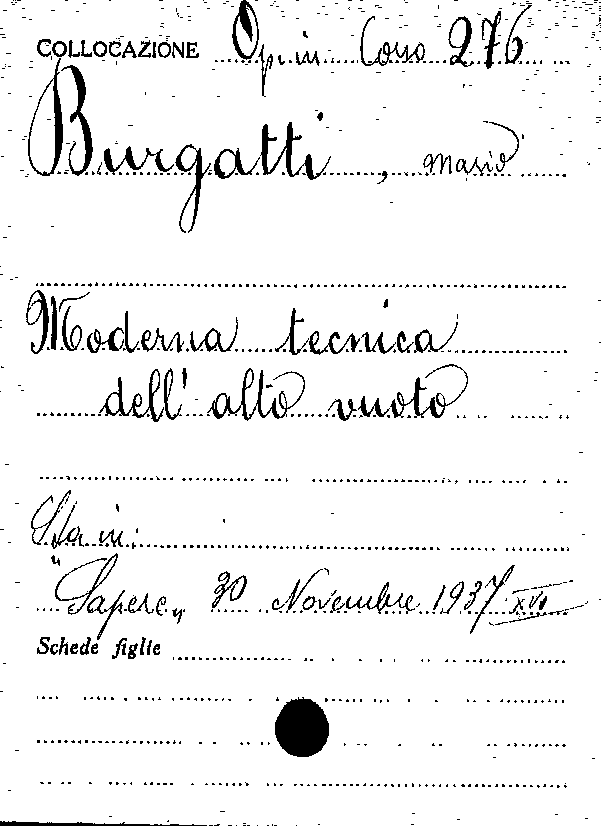 COLLOCAZIONE Op. in Corso 276
Burgatti, Mario
Moderna tecnica
dell' alto vuoto
Sta in:
"Sapere" 30 Novembre 1937 XVI
Schede figlie